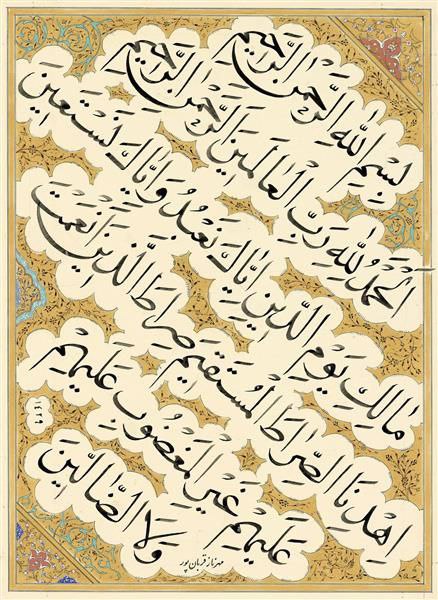 بِسْمِ اللهِ الرَّحْمٰنِ الرَّحیمِ
اَلْحَمْدُ لِلّٰهِ رَبِّ الْعٰالَمینَ الرَّحْمٰنِ الرَّحیمِ
مٰالِكِ یَوْمِ الدّینِ اِیّٰاكَ نَعْبُدُ وَ اِیّٰاكَ نَسْتَعینُ
اِهْدِنَا الصِّرٰاطَ الْمُسْتَقیمَ صِرٰاطَ الَّذینَ اَنْعَمْتَ
عَلَیْهِمْ غَیْرِ الْمَغْضُوبِ عَلَیْهِمْ
وَلَا الضّٰالّینَ
مهرناز قربان پور
١٤٢٩